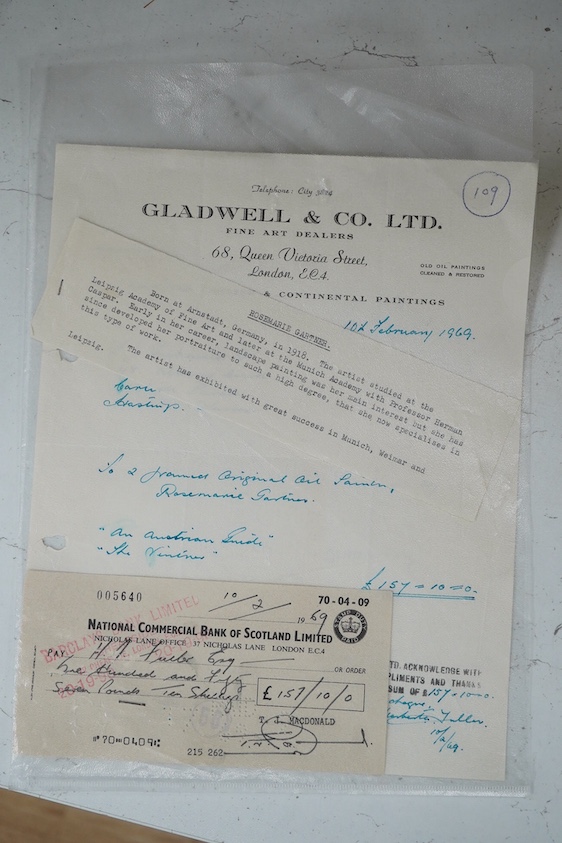 Telephone: City 3824
109
GLADWELL & CO. LTD.
FINE ART DEALERS
68, Queen Victoria Street,
London, E.C.4.
OLD OIL PAINTINGS
CLEANED & RESTORED
& CONTINENTAL PAINTINGS
10th February 1969.
ROSEMARIE GARTNER.
Born at Arnstadt, Germany, in 1918. The artist studied at the
Leipsig Academy of Fine Art and later at the Munich Academy with Professor Herman
Caspar. Early in her career, landscape painting was her main interest but she has
since developed her portraiture to such a high degree, that she now specialises in
this type of work.
The artist has exhibited with great success in Munich, Weimar and
Leipsig.
To 2 framed Original Oil
Rosemarie Gartner.
"An Austrian Guide"
"The Vintner"
£157=10=0.
005640
10/2 1969
70-04-09
NATIONAL COMMERCIAL BANK OF SCOTLAND LIMITED
NICHOLAS LANE OFFICE 37 NICHOLAS LANE LONDON E.C.4
STAMP DUTY PAID
PAY
Esq
OR ORDER
One Hundred and Fifty
Seven Pounds Ten Shillings
£157/10/0
MACDONALD
"70=0409:
215 262
TD. ACKNOWLEDGE WITH
PLIMENTS AND THANKS
SUM OF £157=10=0.
10/2/69.